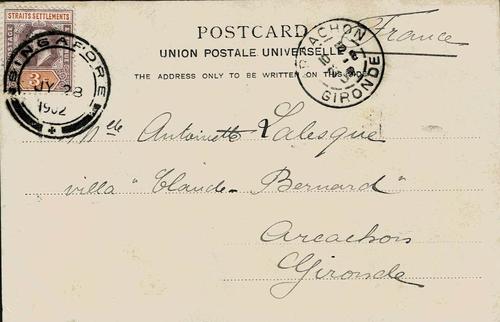 STRAITS SETTLEMENTS
POSTAGE
3c
SINGAPORE
JY 28
1902
POSTCARD
UNION POSTALE UNIVERSELLE
THE ADDRESS ONLY TO BE WRITTEN ON THIS
ARCACHON
GIRONDE
France
Mlle Antoinette Lalesque
villa "Claude-Bernard"
Arcachon
Gironde